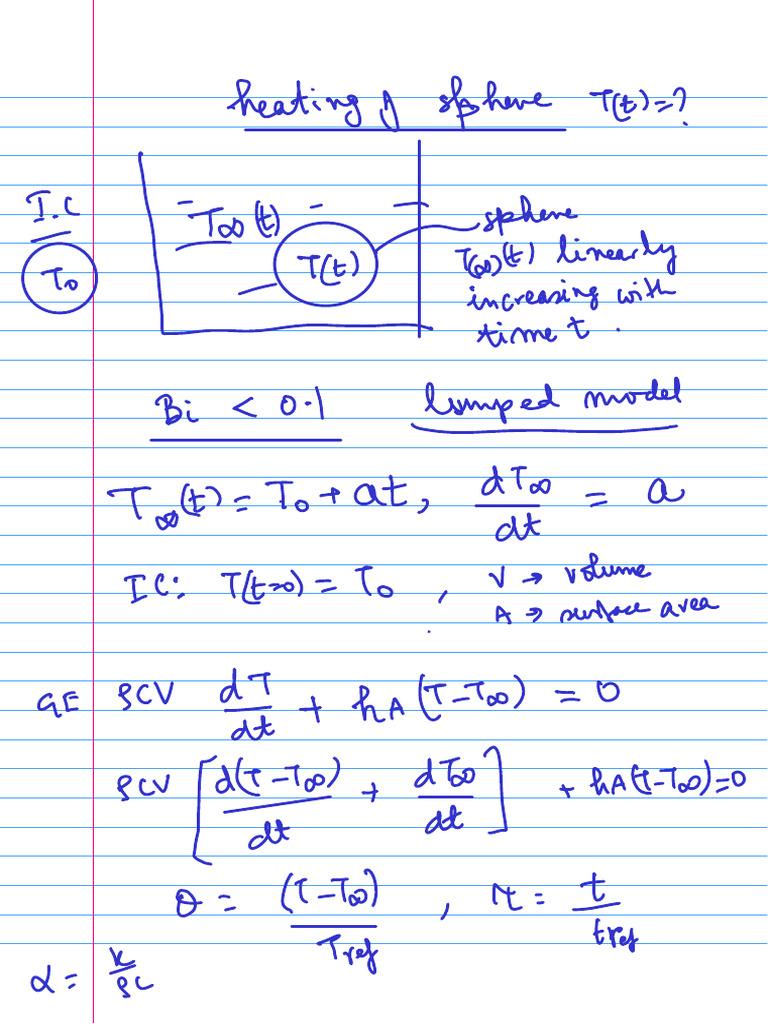 heating of sphere T(t)=?
I.C
T∞(t)
sphere
T₀
T(t)
T(∞)(t) linearly
increasing with
time t.
Bi < 0.1 lumped model
T∞(t) = T₀ + at, dT∞/dt = a
IC: T(t=0) = T₀, V → volume
A → surface area
GE ρCV dT/dt + hA(T-T∞) = 0
ρCV [d(T-T∞)/dt + dT∞/dt] + hA(T-T∞)=0
θ = (T-T∞)/Tref, τ = t/tref
α = k/ρC